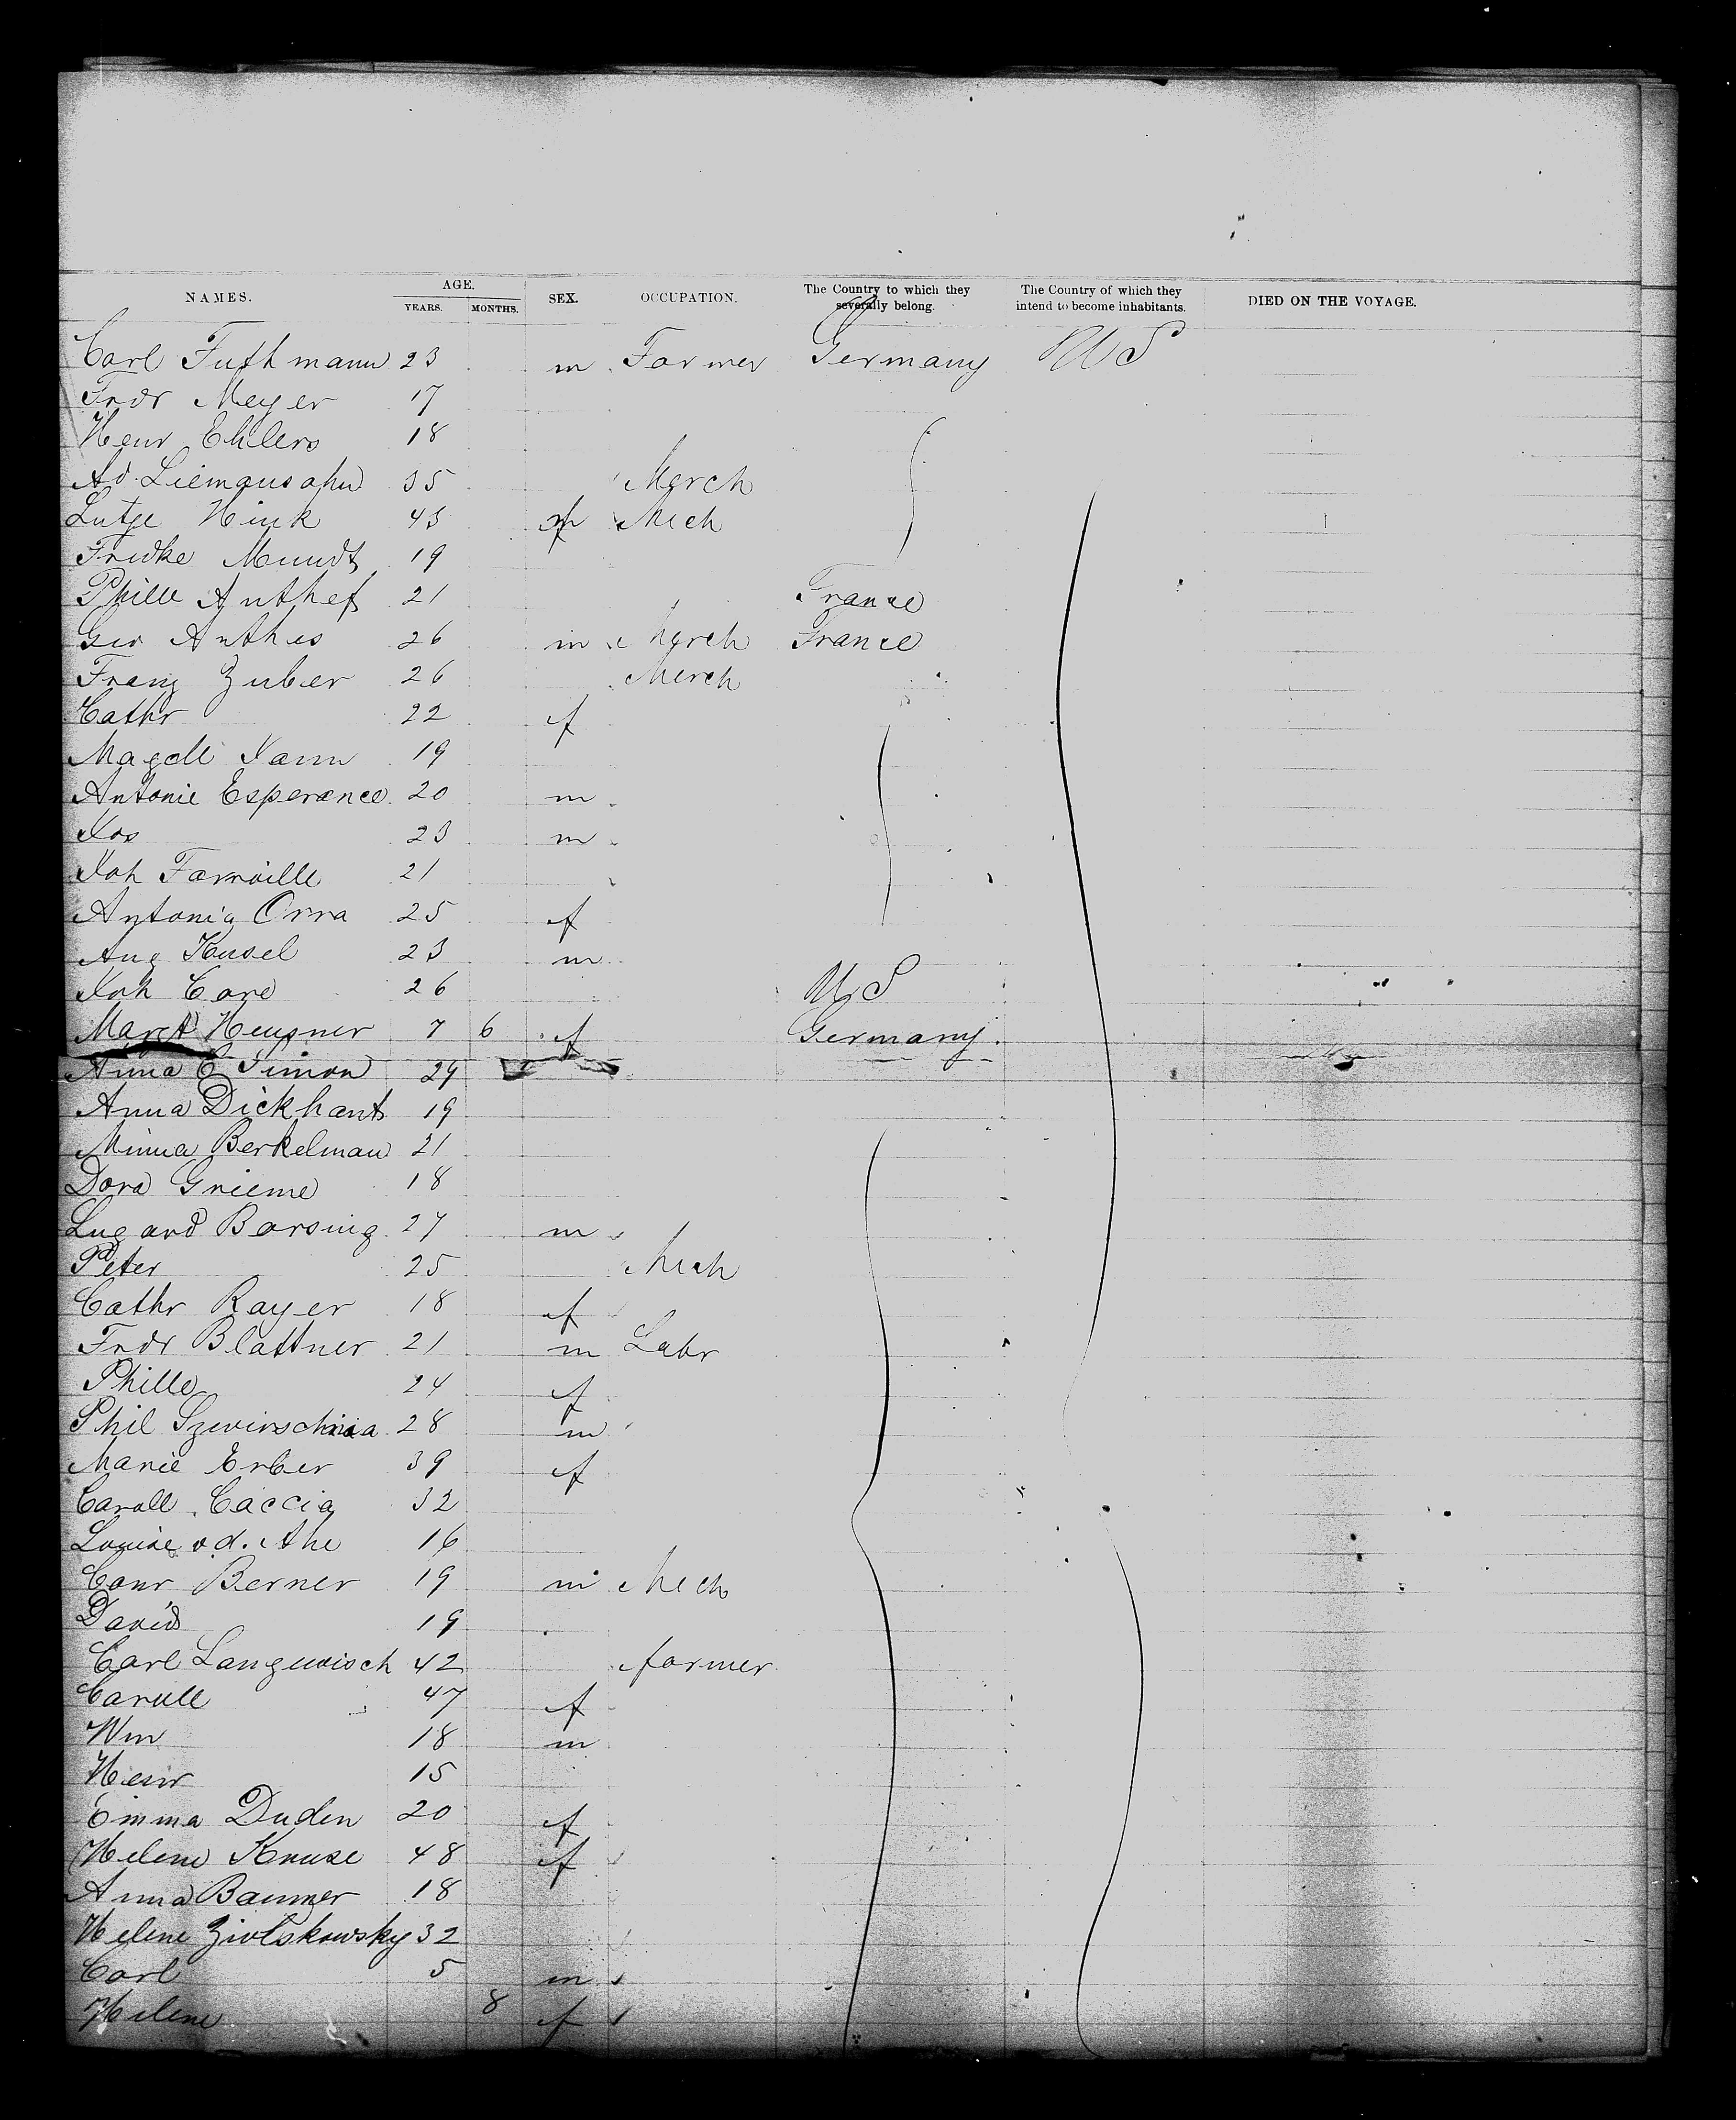 NAMES. AGE. YEARS. MONTHS. SEX. OCCUPATION. The Country to which they severally belong. The Country of which they intend to become inhabitants. DIED ON THE VOYAGE.
Carl Futhmann 23 m Farmer Germany U S
Frdr Meyer 17
Henr Ehlers 18
Ad. Liemansohn 35 Merch
Lutje Hink 43 Mech
Fridke Mundt 19
Phille Anthes 21 France
Geo Anthes 26 m Merch France
Franz Zuber 26 Merch
Cathr 22 f
Magdl 19
Antonie Esperance 20 m
Jos 23 m
Joh Farvoille 21
Antonia Orra 25 f
Aug Kusel 23 m
Joh Card 26 U S
Margt Heusner 7 6 f Germany
Anna C Simon 29
Anna Dickhant 19
Minna Berkelman 21
Dora Grieme 18
Lugard Borsing 27 m
Peter 25 Mech
Cathr Rayer 18 f
Frdr Blattner 21 m Labr
Phille 24 f
Phil 28 m
Marie Erber 39 f
Caroll Caccia 32
Louise v.d. Ahe 16
Conr Berner 19 m Mech
David 19
Carl Langwisch 42 farmer
Caroll 47 f
Wm 18 m
Henr 15
Emma Duden 20 f
Helene Kruse 48 f
Anna Baumer 18
Helene Ziolskowsky 32
Carl 5 m
Helene 8 f